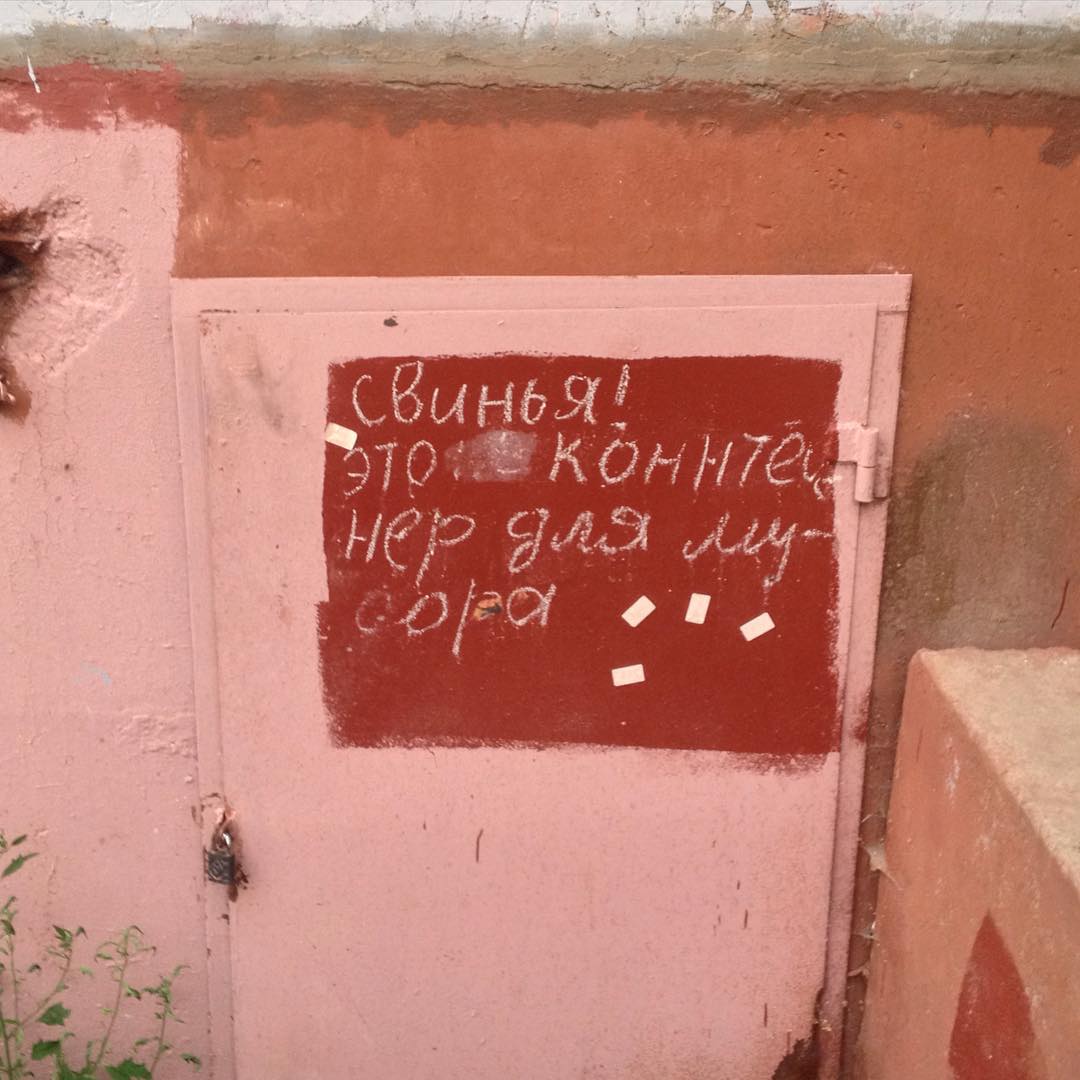 свинья!
это коннтей
нер для му-
сора